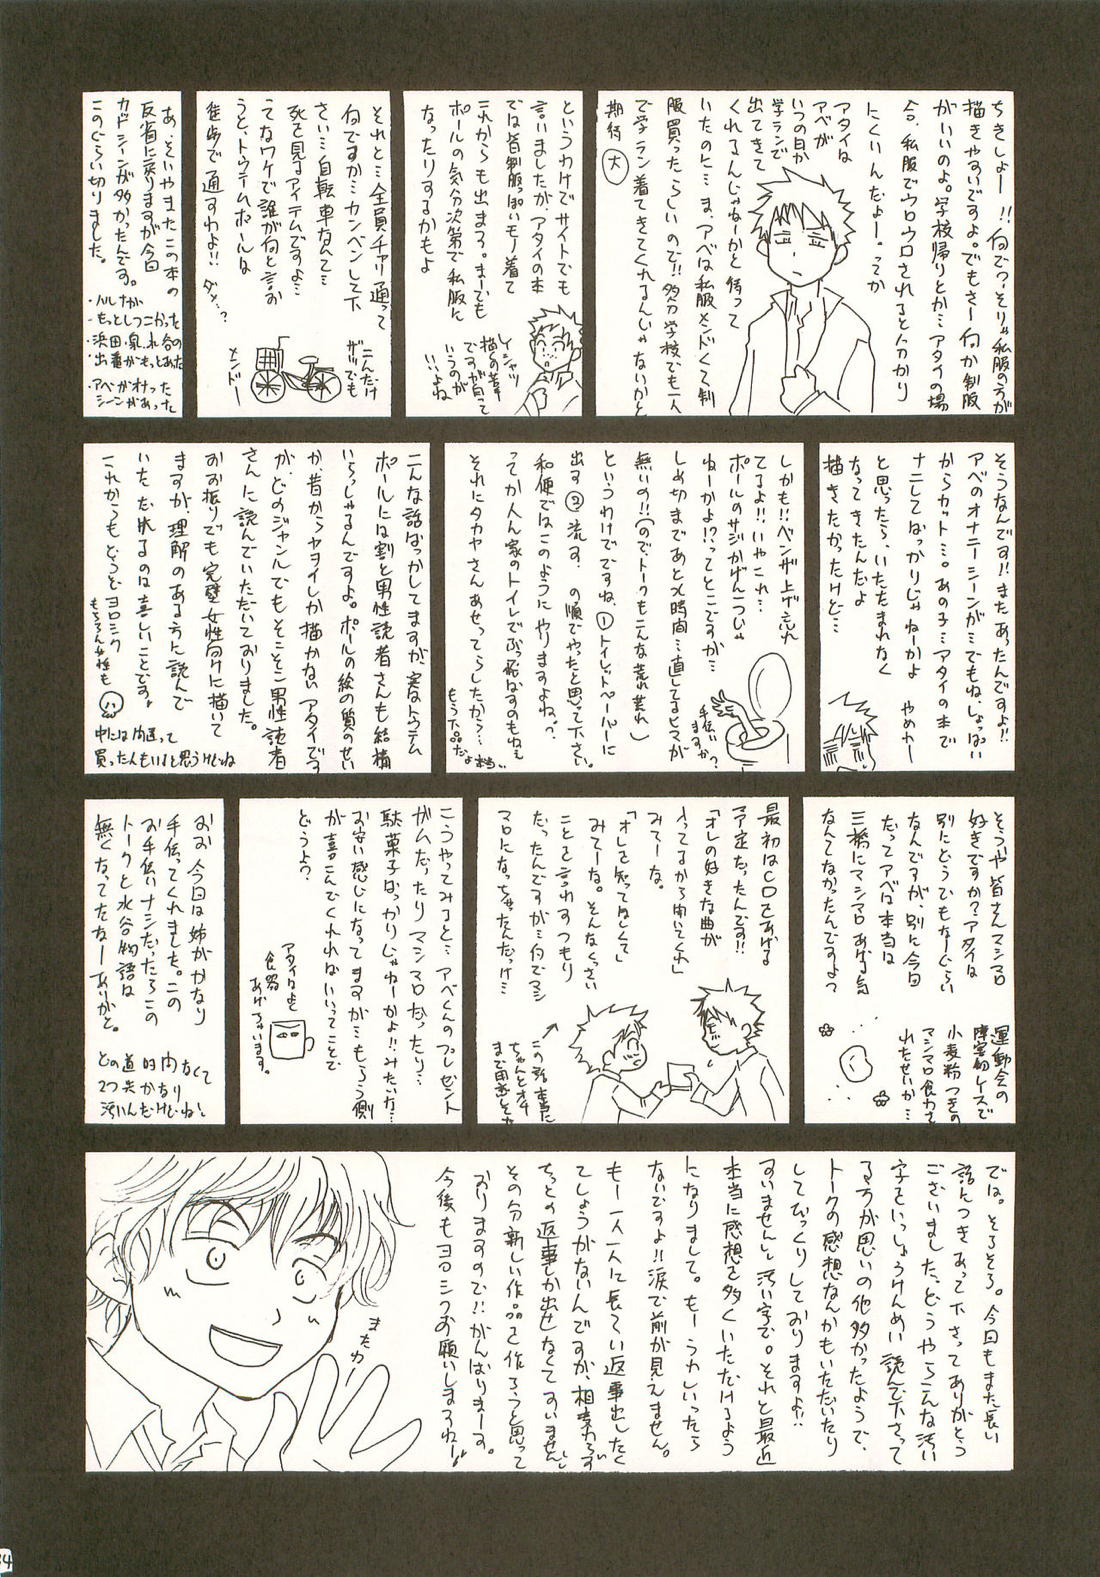 ちきしょー!!何で?そりゃ私服の方が
描きやすいですよ。でもさー何か制服
がいいのよ。学校帰りとか…アタイの場
合、私服でウロウロされると分かり
にくいんだよー。ってか
アタイは
アベが
いつの日か
学ランで
出てきて
くれるんじゃねーかと待って
いたのに…ま、アベは私服メンドくて制
服買ったらしいので!!多分学校でも一人
で学ラン着てきてくれるんじゃないかと
期待大
というわけでサイトでも
言いましたが、アタイの本
では皆制服っぽいモノ着て
これからも出まろ。まーでも
ポールの気分次第で私服に
なったりするかもよ
Yシャツ
描くの苦手
ですが白って
いうのが
いいよね
それと…全員チャリ通って
何ですか…カンベンして下
さい…自転車なんて…
死を見るアイテムですよ…
てなワケで誰が何と言お
うと、トウテムポールは
徒歩で通すわよ!!ダメ…?
こんだけ
ザッでも
メンドー
あ、そいやまたこの本の
反省に戻りますが今回
カットシーンが多かったんです。
このぐらい切りました。
・ハルナが
もっとしつこかった
・浜田・泉・水谷の
出番がもっとあった
・アベがオナった
シーンがあった
そうなんです!!またあったんですよ!!
アベのオナニーシーンが…でもね、しょっぱい
からカット…。あの子…アタイの本で
ナニしてばっかりじゃねーかよ
と思ったら、いたたまれなく
なってきたんだよ
描きたかったけど…
やめれー
しかも!!ベンザ上げ忘れ
てるよ!!いやこれ…
ポールのサジかげん一つじゃ
ねーかよ!?ってとこですが…
しめ切りまであと×時間…直してるヒマが
無いの!!(ので、トークもこんな荒れ荒れ)
というわけでですね、①トイレットペーパーに
出す②流す の順でやったと思って下さい。
和便ではこのようにやりますよね?
ってか人ん家のトイレでぶっ飛ばすのもねぇ
それにタカヤさんあせってらしたから…
もうダメだな本当…
手伝い
ますか?
こんな話ばっかしてますが、実はトウテム
ポールには割と男性読者さんも結構
いらっしゃるんですよ。ポールの絵の質のせい
か、昔からヤヲイしか描かないアタイです
が、どのジャンルでもそこそこ男性読者
さんに読んでいただいておりました。
おお振りでも完璧女性向けに描いて
ますが、理解のある方に読んで
いただけるのは喜しいことです。
これからもどうぞヨロシク
もちろん女性も
中には間違って
買ったんもいると思うけどね
そういや皆さんマシマロ
好きですか?アタイは
別にどうでもなーぐらい
なんですが、別に今回
だってアベは本当は
三橋にマシマロあげる気
なんてなかったんですよ?
運動会の
障害物レースで
小麦粉つきの
マシマロ食わさ
れたせいか…
最初はCDをあげる
予定だったんです!!
「オレの好きな曲が
入ってるから聞いてくれ」
みてーな。
「オレを知ってほしくて」
みてーな。そんなくっさい
ことを言わすつもり
だったんですが…何でマシ
マロになっちゃったんだっけ…
この話本当に
ちゃんとオチ
まで用意してたや
こうやってみると…アベくんのプレゼント
ガムだったりマシマロだったり…
駄菓子ばっかりじゃねーかよ!!みたいな…
お安い感じになってますが…もらう側
が喜こんでくれればいいってことで
どうよ?
アタイはよく
食器
あげちゃいます。
おお今回は姉がかなり
手伝ってくれました。この
お手伝いナシだったらこの
トークと水谷物語は
無くなってたなーありがと。
どの道時間なくて
2つ共かなり
汚いんだけどね。
では。そろそろ。今回もまた長い
話しつきあって下さってありがとう
ございました。どうやらこんな汚い
字をいっしょうけんめい読んで下さって
る方が思いの他多かったようで、
トークの感想なんかもいただいたり
してびっくりしておりますよ!!
すいませんして汚い字で。それと最近
本当に感想を多くいただけるよう
になりまして。もーうれしいったら
ないですよ!!涙で前が見えません。
もー一人一人に長てい返事出したく
てしょうがないんですが、相変わらず
ちっとの返事しか出せなくてすいません
その分新しい作品を作ろうと思って
おりますので!!がんばりまーす。
今後もヨロシクお願いしますねー!!
またねー
34